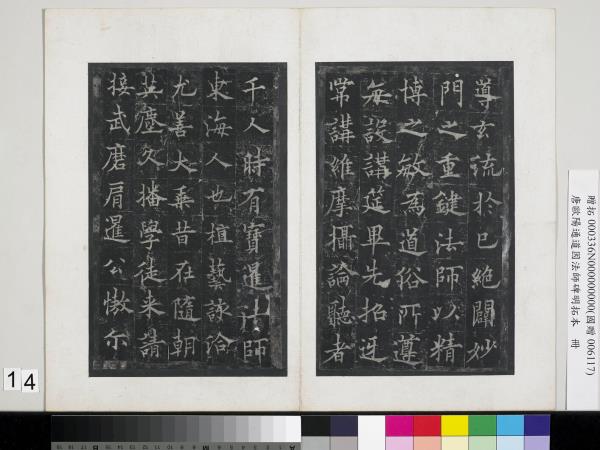 導玄流於已絕闢妙
門之重鍵法師以精
博之敏為道俗所遵
每設講筵畢先招迓
常講維摩攝論聽者
千人時有寶暹法師
東海人也植藝該洽
尤善大乘昔在隋朝
英塵久播學徒來請
接武磨肩暹公傲尒
贈拓 000336N000000000(國贈 006117)
唐歐陽通道因法師碑明拓本 冊
14